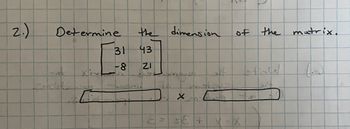 2.) Determine the dimension of the matrix.
31 43
-8 21
x